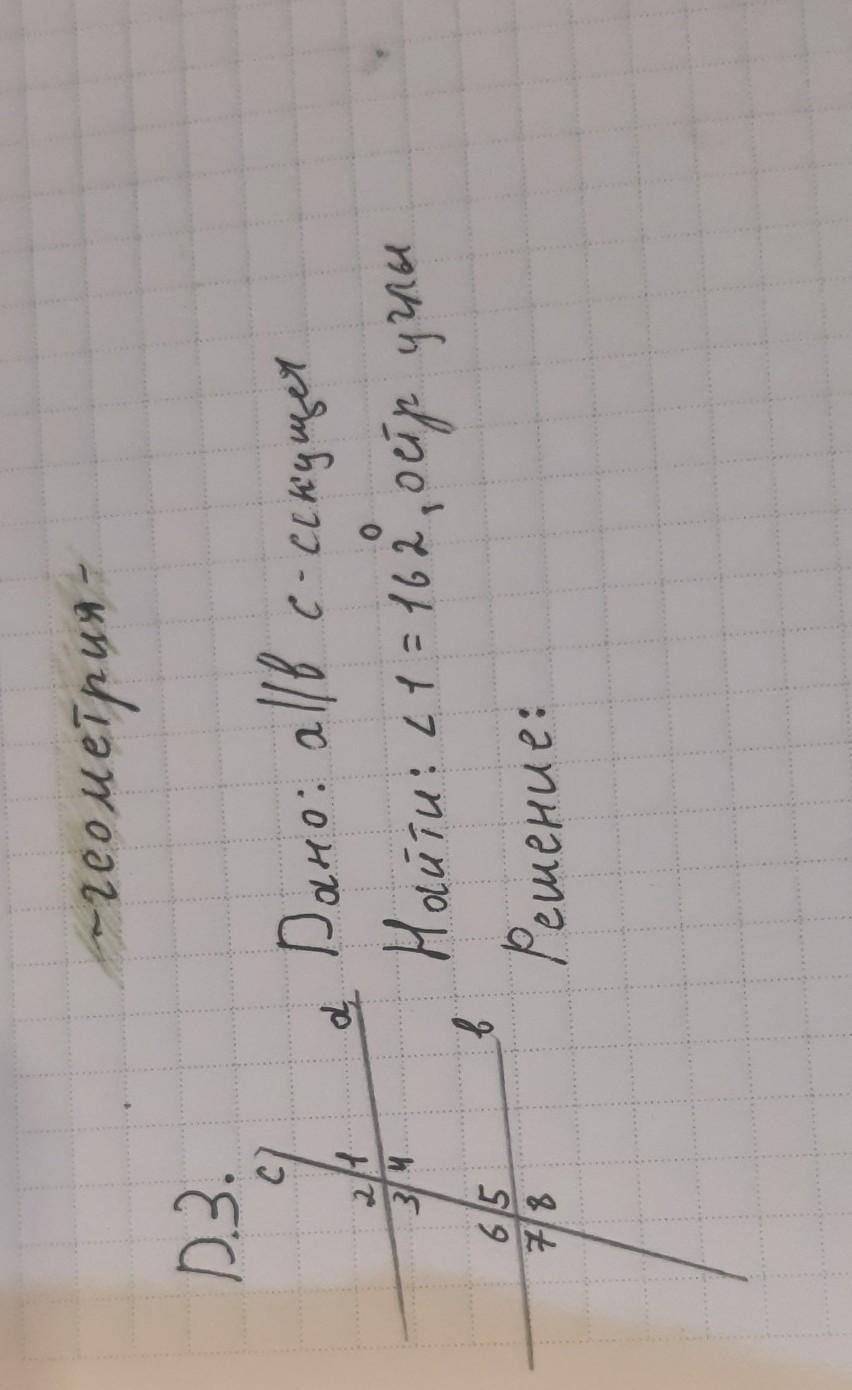 -геометрия-
Д.З.
Дано: a||в с-секущея
Найти: <1=162°, остр углы
Решение:
с
a
2 1
3 4
в
6 5
7 8